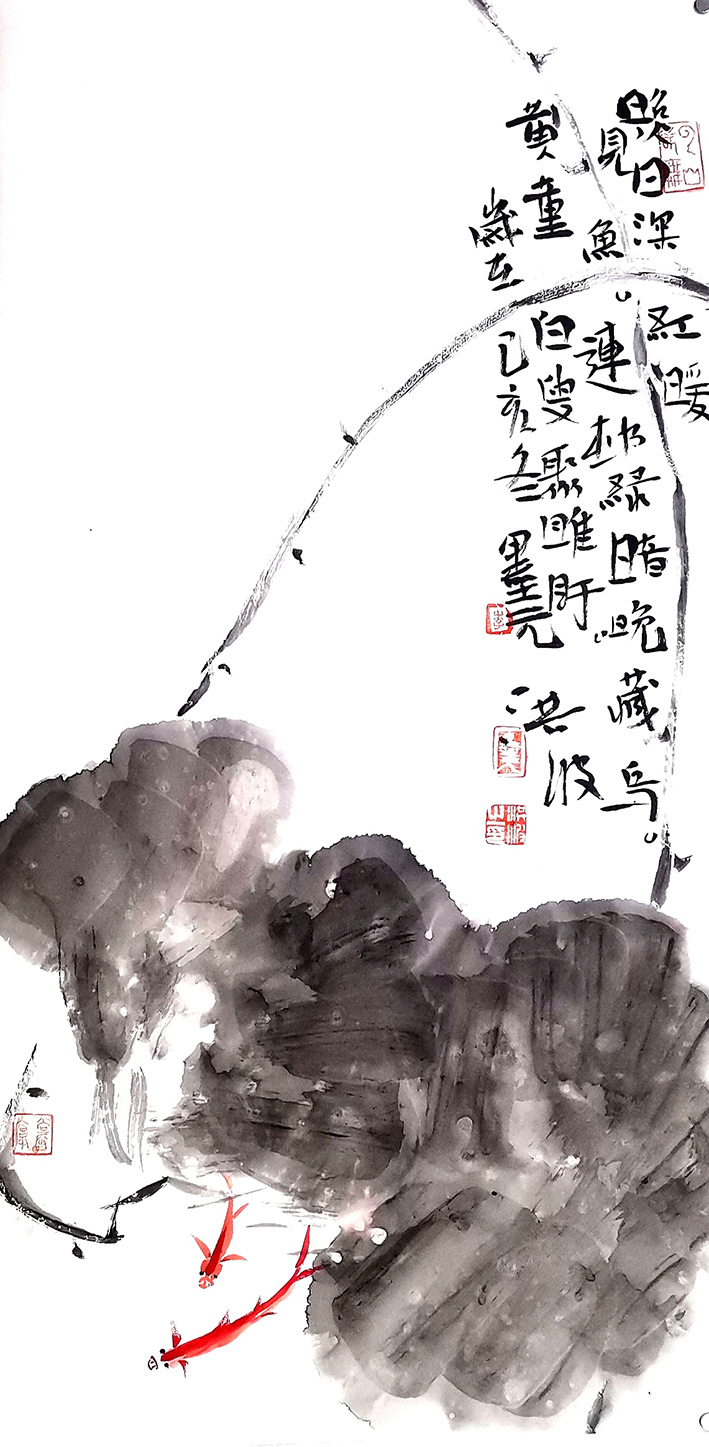 照日深紅暖
見魚。連村緑暗晚藏烏。
黄童白叟聚睢盱
歲在己亥冬墨元
洪波